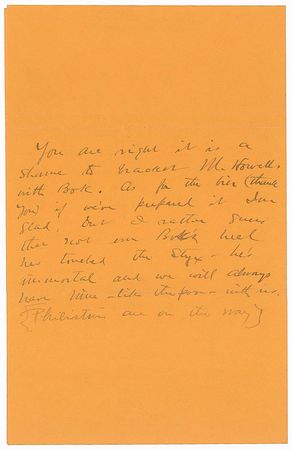 You are right it is a
shame to bracket Mr. Howells
with Bok. As for the bier (thank
you) if we've prepared it I'm
glad, but I rather guess
that not even Bok's heel
has touched the Styx – he's
immortal and we will always
have him – like the poor – with us.
{Philistines are on the way}